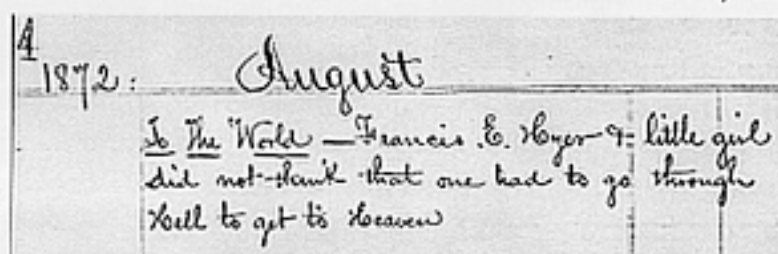 4
1872: August
To The World — Francis E. Hyer & little girl
did not think that one had to go through
Hell to get to Heaven